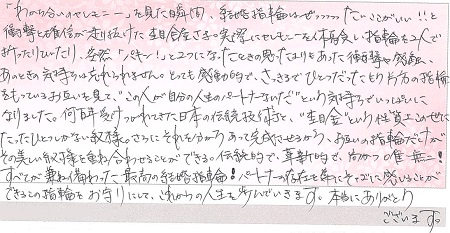 「わかちあいのセレモニー」を見た瞬間、結婚指輪はぜっっったいここがいい!!と
衝撃と確信が走り抜けた杢目金屋さん。実際にセレモニーを体験し、指輪を2人で
折ったりひねったり、突然"パキン!"と二つになったときの思ったよりもあった衝撃や感触、
あのときの気持ちは忘れられません。とっても感動的で、さっきまでひとつだったもう片方の指輪
をもっているお互いを見て、"この人が自分の人生のパートナーなんだ"という気持ちでいっぱいに
なりました。何百年受けつがれてきた日本の伝統技術と、"杢目金"という性質上、世に
たったひとつしかない紋様。さらにそれを分かちあって完成させるから、お互いの指輪だけが
その美しい紋様を重ね合わせることができる。伝統的で、革新的で、尚かつ唯一無二!
すべてが兼ね備わった最高の結婚指輪!パートナーの存在を常にそばに感じることが
できるこの指輪をお守りにして、これからの人生を歩んでいきます。本当にありがとう
ございます。